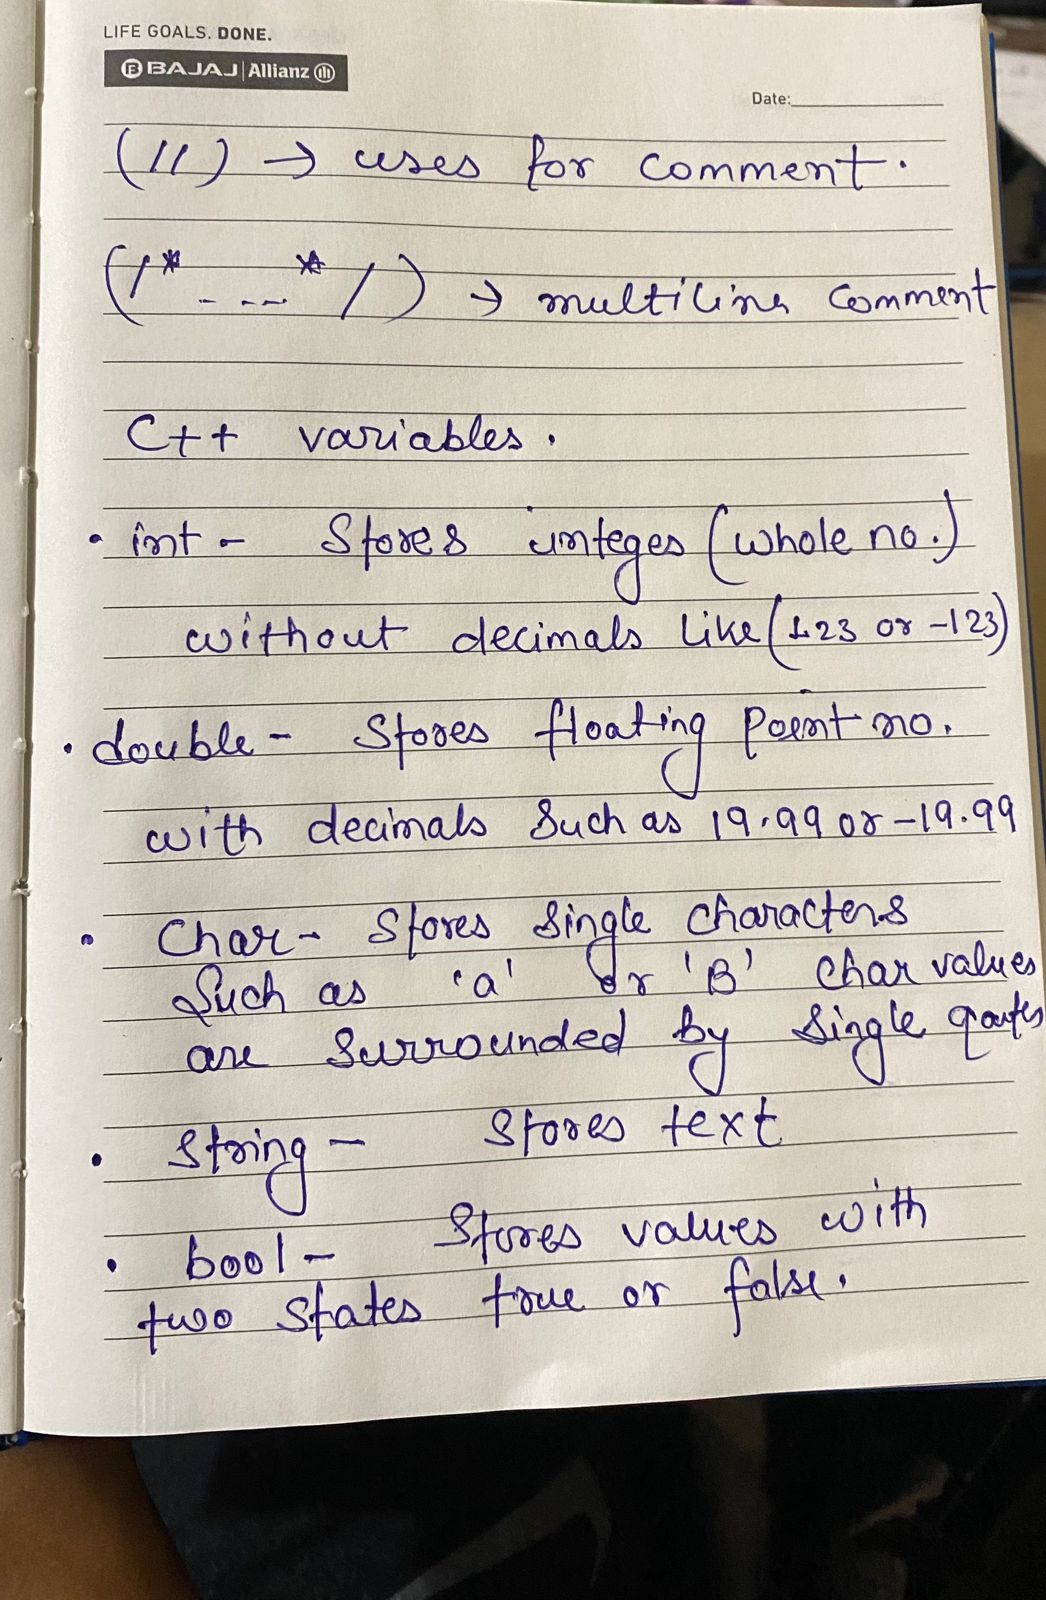 LIFE GOALS. DONE.
BAJAJ | Allianz
Date:
(//) → uses for comment.
(/* - -- */) → multiline Comment
C++ variables.
• int - Stores integes (whole no.)
without decimals like (123 or -123)
• double - Stores floating point no.
with decimals Such as 19.99 or -19.99
• Char - Stores Single characters
Such as 'a' or 'B' char values
are Surrounded by Single qoutes
• String - Stores text
• bool - Stores values with
two states true or false.